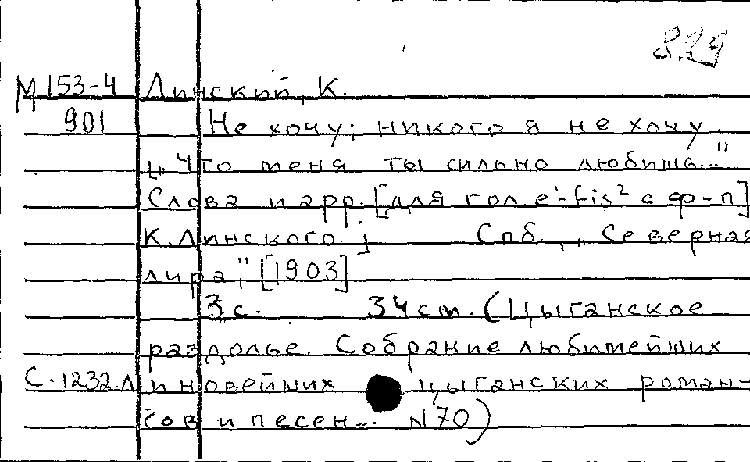 829
М 153-4 Линский, К.
901 Не хочу; никого я не хочу.
„Что меня ты сильно любишь..."
Слова и арр. [для гол. e¹-fis² с ф-п]
К. Линского. Спб., „Северная
лира", [1903]
3 с. 34 cm. (Цыганское
раздолье. Собрание любимейших
С.1232. и новейших цыганских роман-
сов и песен... N 70)